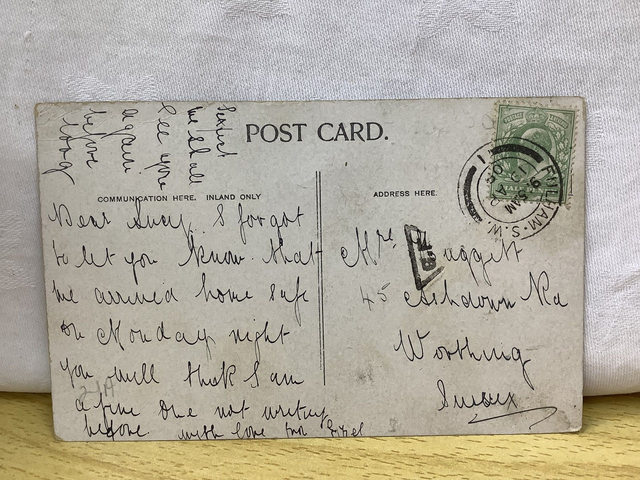 POST CARD.
COMMUNICATION HERE. INLAND ONLY
ADDRESS HERE.
Dear Lucy, I forgot
to let you know that
we arrived home safe
on Monday night
you will think I am
a fine one not writing
before with love from Ethel
we shall
see you
again
before
long
Mrs Duggett
45 Ashdown Rd
Worthing
Sussex
FULHAM · S.W.